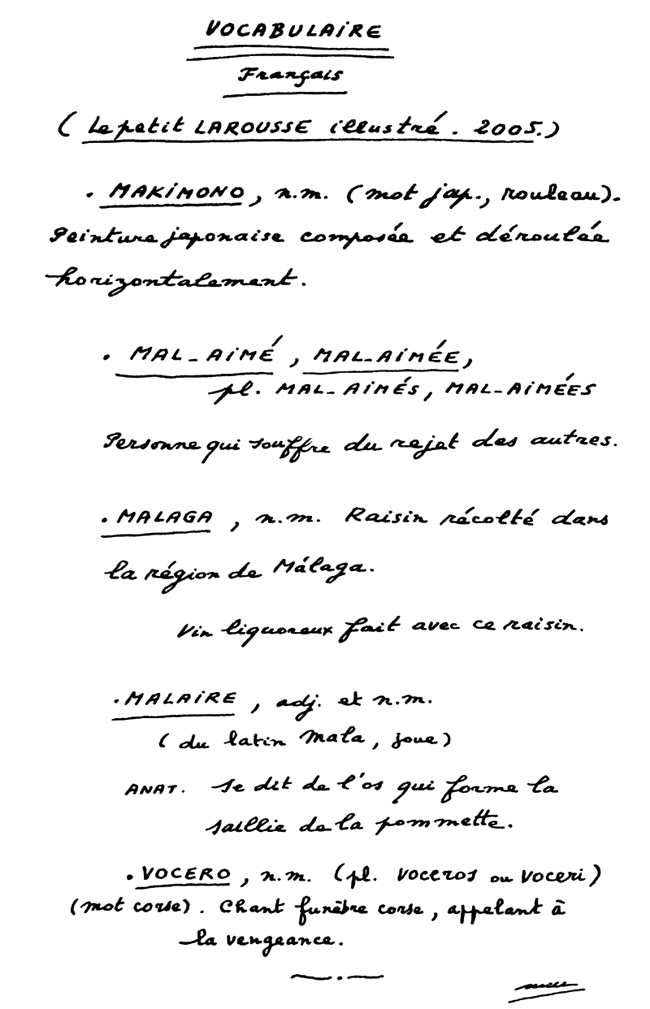 VOCABULAIRE
Français
( Le petit LAROUSSE illustré. 2005.)
. MAKIMONO, n.m. (mot jap., rouleau).
Peinture japonaise composée et déroulée
horizontalement.
. MAL-AIMÉ, MAL-AIMÉE,
pl. MAL-AIMÉS, MAL-AIMÉES
Personne qui souffre du rejet des autres.
. MALAGA, n.m. Raisin récolté dans
la région de Málaga.
Vin liquoreux fait avec ce raisin.
. MALAIRE, adj. et n.m.
( du latin mala, joue)
ANAT. Se dit de l'os qui forme la
saillie de la pommette.
. VOCERO, n.m. (pl. voceros ou voceri)
(mot corse). Chant funèbre corse, appelant à
la vengeance.